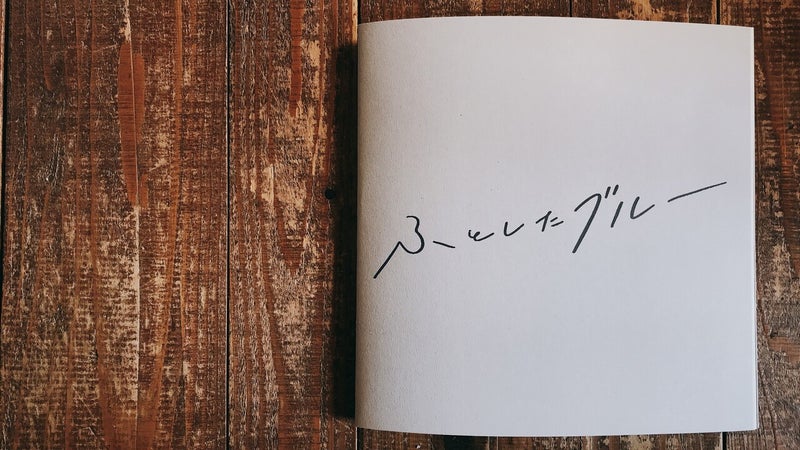 ふとしたブルー